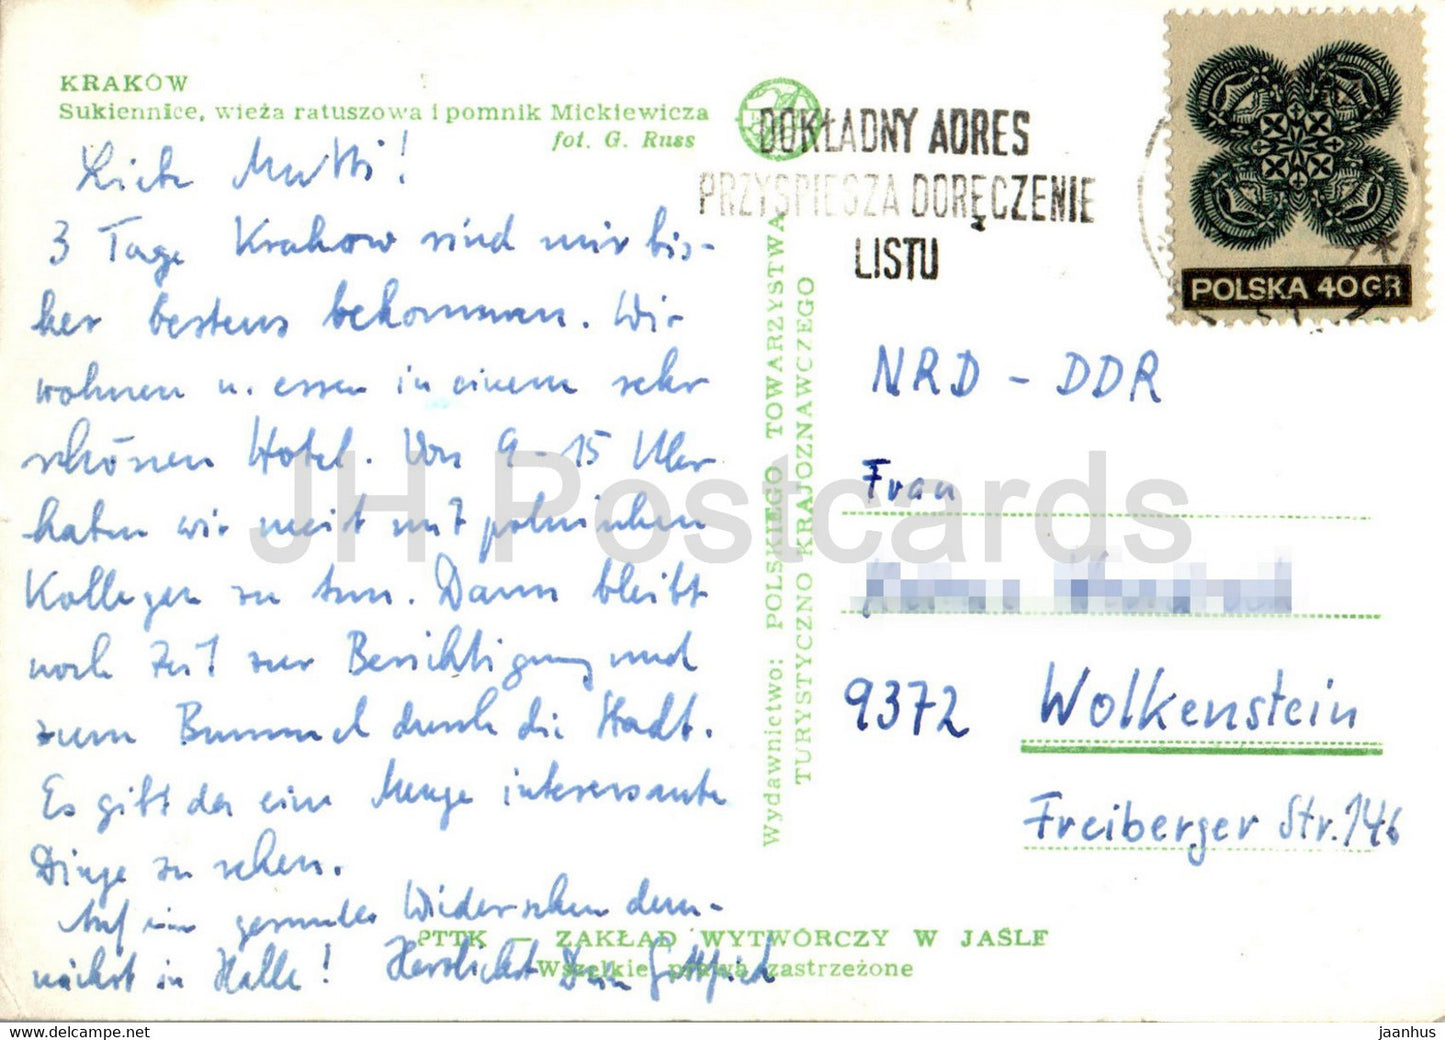 KRAKÓW
Sukiennice, wieża ratuszowa i pomnik Mickiewicza
fot. G. Russ
Liebe Mutti!
3 Tage Krakow sind mir bis-
her bestens bekommen. Wir
wohnen u. essen in einem sehr
schönen Hotel. Von 9-15 Uhr
haben wir meist mit polnischen
Kollegen zu tun. Dann bleibt
noch Zeit zur Besichtigung und
zum Bummel durch die Stadt.
Es gibt da eine Menge interessante
Dinge zu sehen.
Auf ein gesundes Wiedersehen dem-
nächst in Halle! Herzlichst Dein Gottfried
Wydawnictwo: POLSKIEGO TOWARZYSTWA
TURYSTYCZNO KRAJOZNAWCZEGO
PTTK — ZAKŁAD WYTWÓRCZY W JAŚLE
Wszelkie prawa zastrzeżone
DOKŁADNY ADRES
PRZYSPIESZA DORĘCZENIE
LISTU
POLSKA 40GR
NRD - DDR
Frau
9372 Wolkenstein
Freiberger Str. 146
JH Postcards
jaanhus